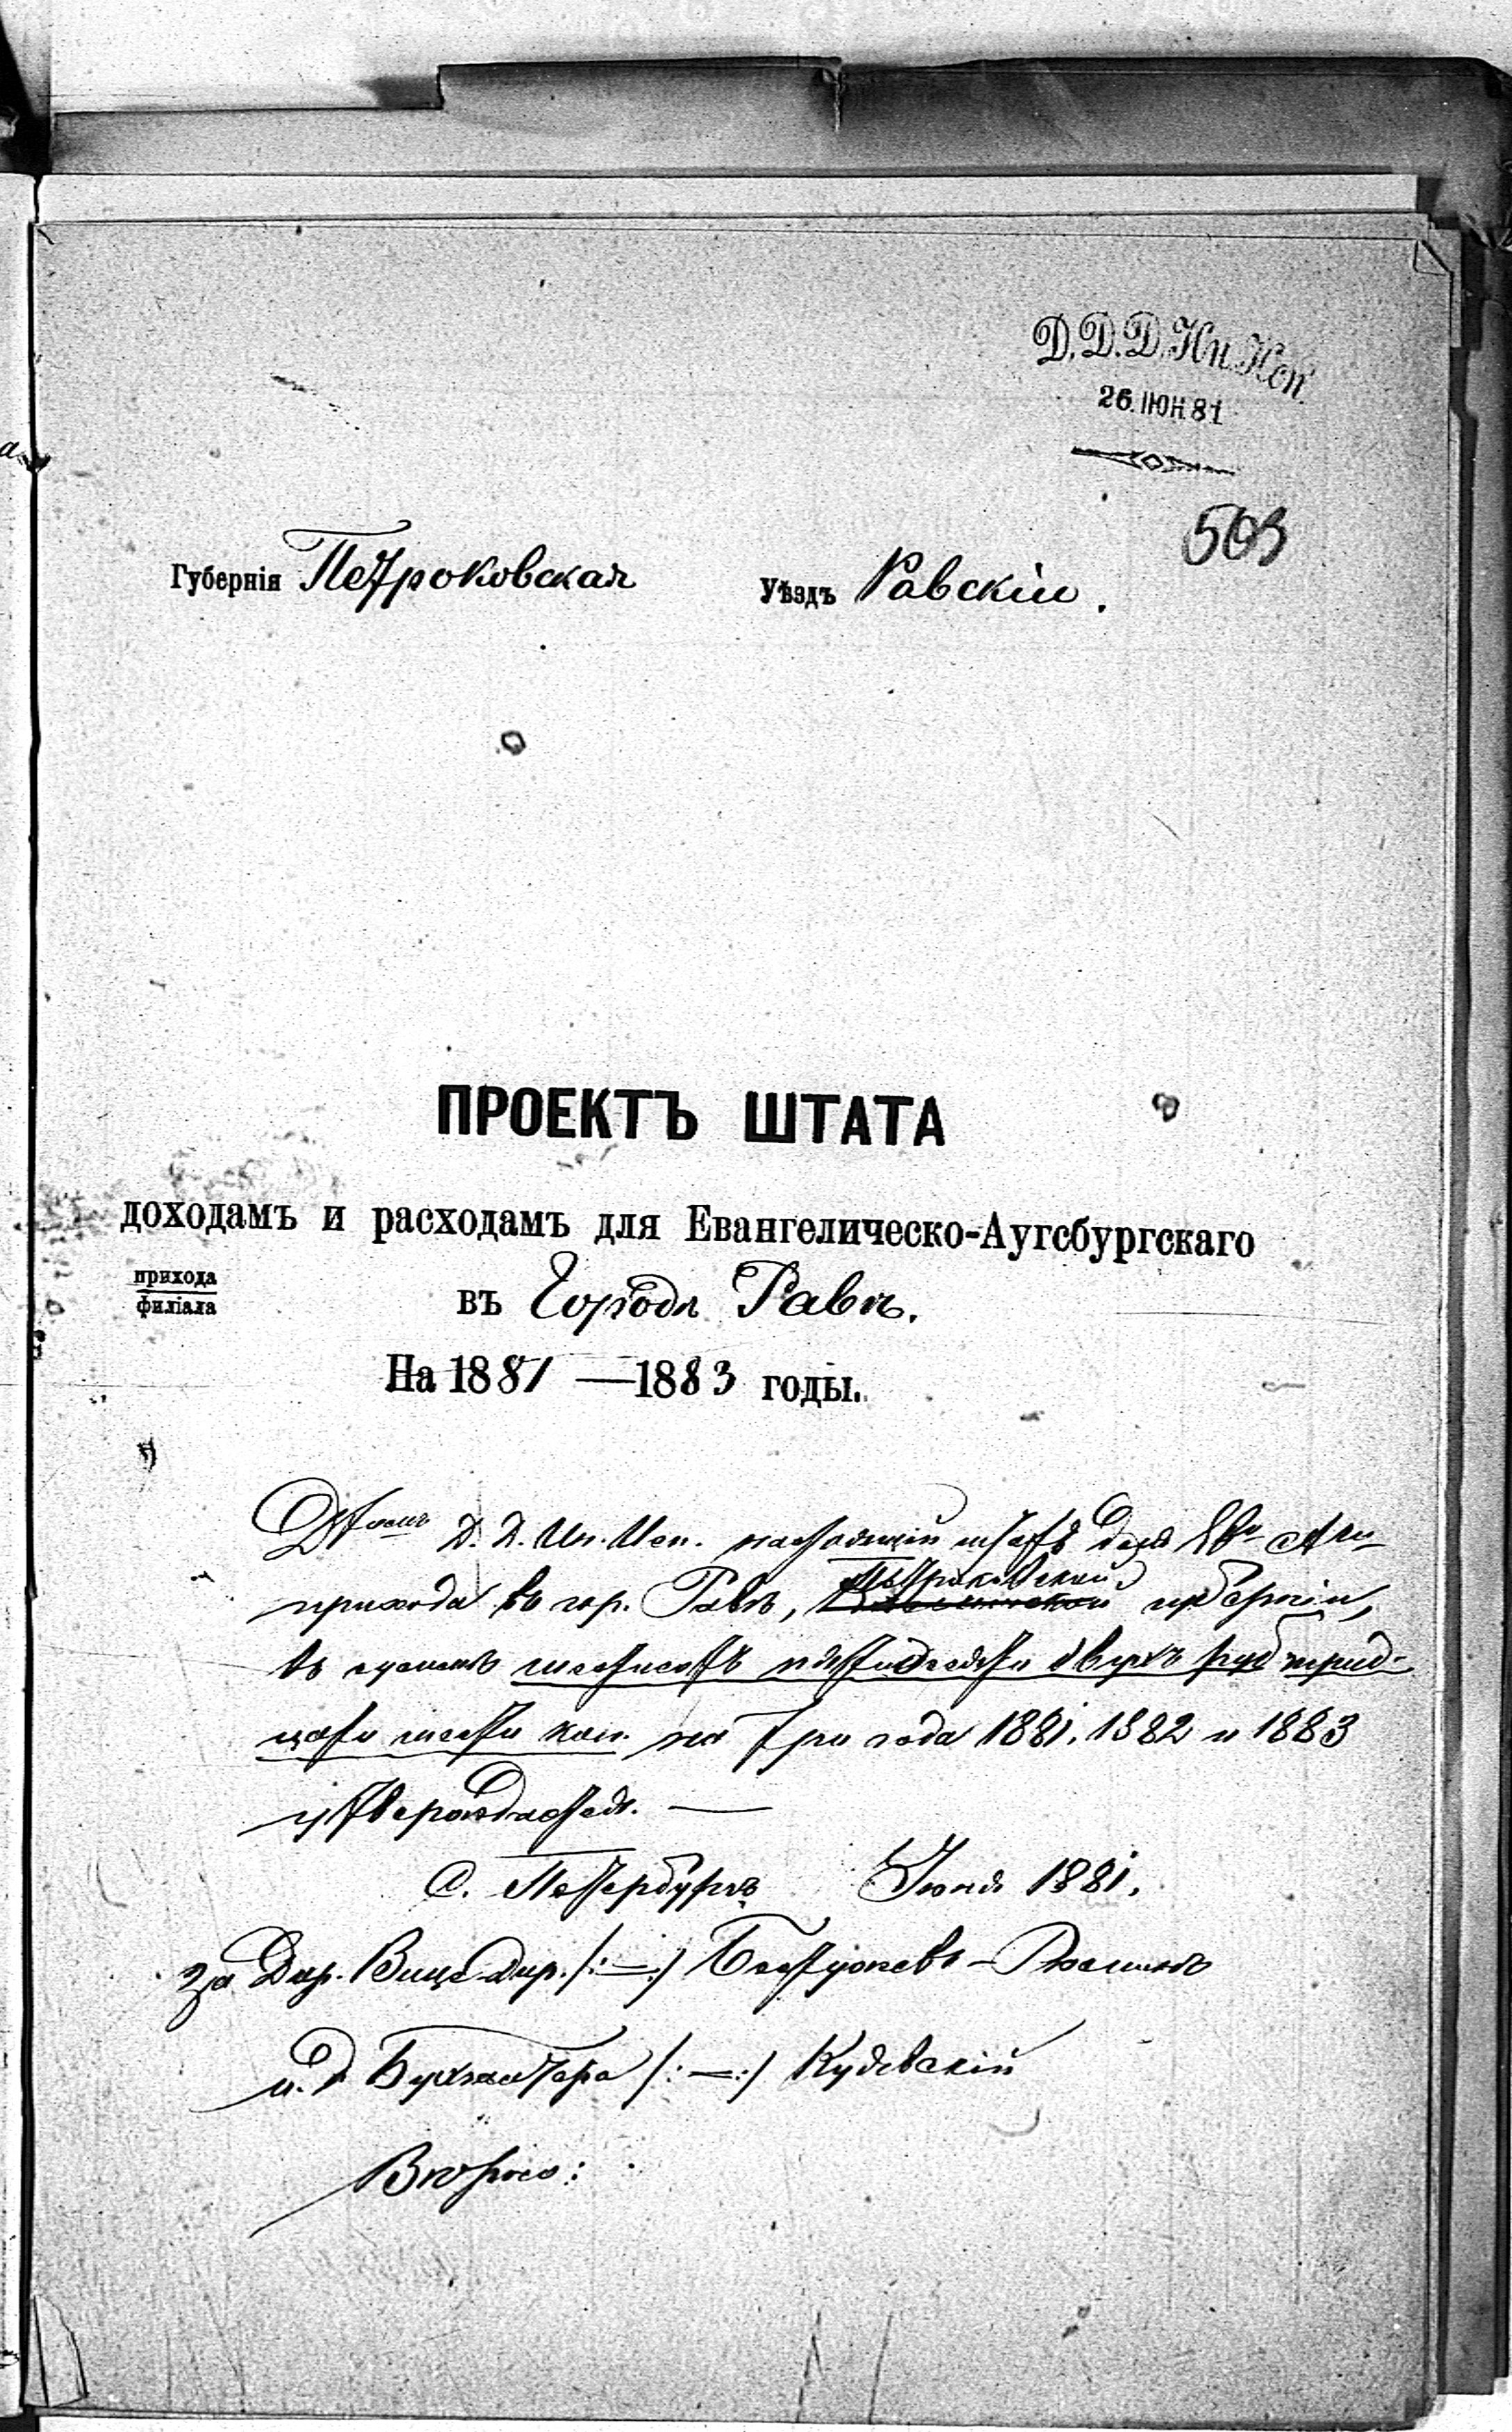 Д.Д.Д.Ин.Исп.
26.IЮН.81
503
Губернія Петроковская Уѣздъ Равскій.
ПРОЕКТЪ ШТАТА
доходамъ и расходамъ для Евангелическо-Аугсбургскаго
прихода
филіала
въ Городѣ Равѣ.
На 1881 — 1883 годы.
Д. Д. Ин. Исп. настоящій штатъ для Ев. Аг.
прихода въ гор. Равѣ, Петроковской губерніи,
въ суммѣ шестьсотъ пятьдесяти двухъ руб трид-
цати шести коп. на три года 1881, 1882 и 1883
утверждается. —
С. Петербургъ Іюня 1881.
За Дир. Вице-Дир. /:—:/ Бестужевъ-Рюминъ
и. д. Бухгалтера /:—:/ Кудевскій
Вѣрно: